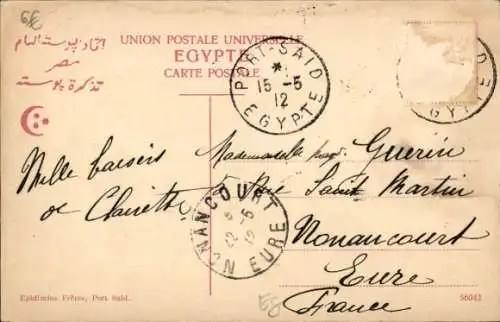 اتحاد بوستة العام
مصر
تذكرة بوسته
UNION POSTALE UNIVERSELLE
EGYPTE
CARTE POSTALE
PORT-SAID
15-5
12
EGYPTE
GYPTE
Mille baisers
de
Mademoiselle Guerin
Rue Saint Martin
Nonancourt
Eure
France
NONANCOURT
EURE
Ephtimios Frères, Port Said.
56042